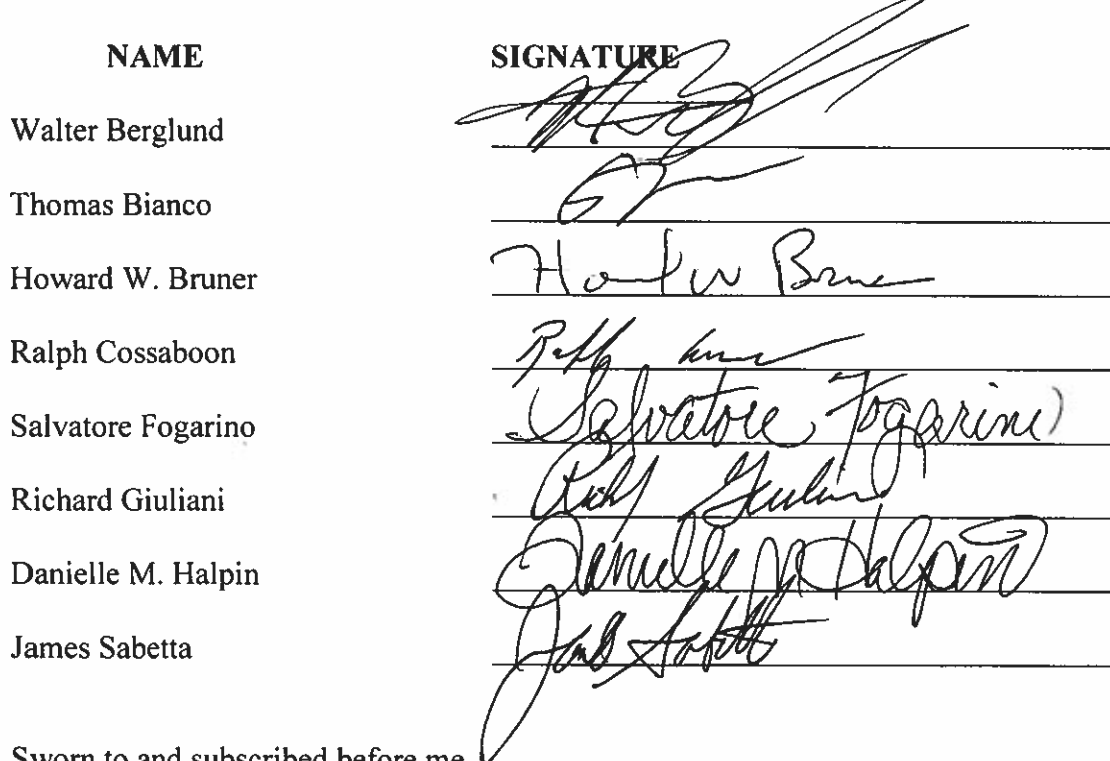 NAME SIGNATURE
Walter Berglund
Thomas Bianco
Howard W. Bruner How W Brune
Ralph Cossaboon Ralph
Salvatore Fogarino Salvatore Fogarino
Richard Giuliani Rich Giuliani
Danielle M. Halpin Danielle M Halpin
James Sabetta James Sabetta
Sworn to and subscribed before me